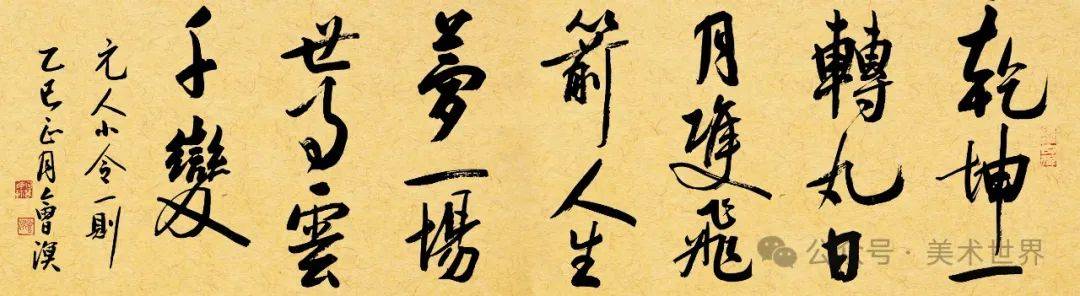 乾坤一
轉丸日
月雙飛
箭人生
夢一場
世事雲
千變
元人小令一則
乙巳正月
公众号 · 美术世界